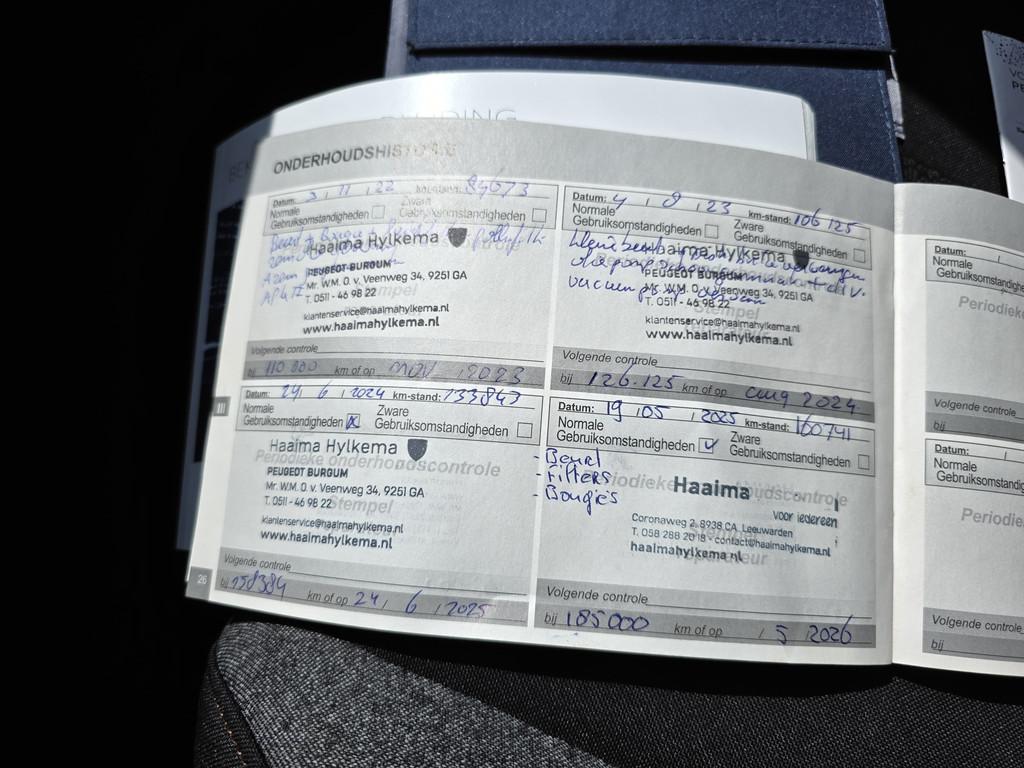 ONDERHOUDSHISTORIE
Datum: 3 / 11 / 22 km-stand: 84673
Normale Gebruiksomstandigheden
Zware Gebruiksomstandigheden
Beurt + Bougies
Haaima Hylkema
PEUGEOT BURGUM
Mr. W.M. O. v. Veenweg 34, 9251 GA
T. 0511 - 46 98 22
klantenservice@haaimahylkema.nl
www.haaimahylkema.nl
Volgende controle
bij 110 000 km of op nov / 2023
Datum: 4 / 8 / 23 km-stand: 106 125
Normale Gebruiksomstandigheden
Zware Gebruiksomstandigheden
kleine beurt
Haaima Hylkema
PEUGEOT BURGUM
Mr. W.M. O. v. Veenweg 34, 9251 GA
T. 0511 - 46 98 22
Stempel
klantenservice@haaimahylkema.nl
www.haaimahylkema.nl
Volgende controle
bij 126.125 km of op aug 2024
Datum: 24 / 6 / 2024 km-stand: 133843
Normale Gebruiksomstandigheden
Zware Gebruiksomstandigheden
Haaima Hylkema
Periodieke onderhoudscontrole
PEUGEOT BURGUM
Mr. W.M. O. v. Veenweg 34, 9251 GA
T. 0511 - 46 98 22
Stempel
klantenservice@haaimahylkema.nl
www.haaimahylkema.nl
Volgende controle
bij 158384 km of op 24 / 6 / 2025
Datum: 19 / 05 / 2025 km-stand: 160741
Normale Gebruiksomstandigheden
Zware Gebruiksomstandigheden
- Beurt
- Filters
- Bougies
Haaima
voor iedereen
Coronaweg 2, 8938 CA Leeuwarden
T. 058 288 20 18 - contact@haaimahylkema.nl
haaimahylkema.nl
Volgende controle
bij 185000 km of op / 5 / 2026
26
III
Datum: /
Normale
Gebruiksomstandighe
Periodieke
Volgende controle
bij
Datum: /
Normale
Gebruiksomstandighe
Periodie
Volgende controle
bij